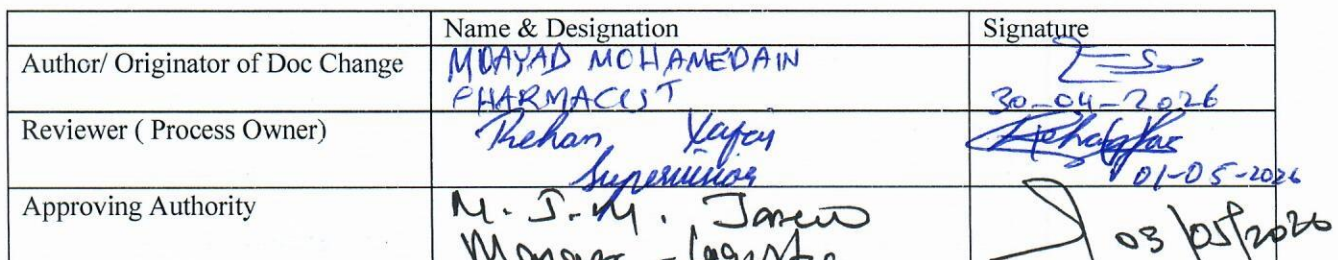 Name & Designation Signature
Author/ Originator of Doc Change MOAYAD MOHAMEDAIN
PHARMACIST 30-04-2026
Reviewer ( Process Owner) Rehan
Supervisor 01-05-2026
Approving Authority M. J. M.
03/05/2026